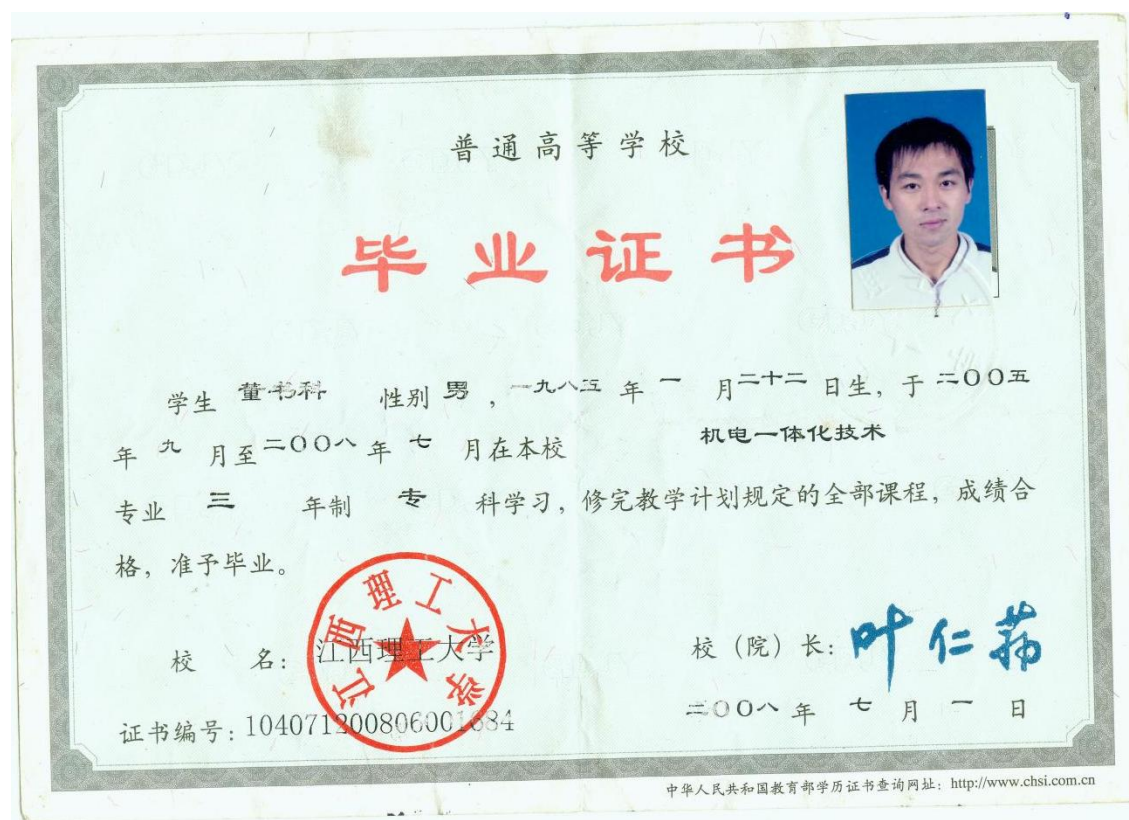 普通高等学校
毕业证书
学生 董书科 性别 男 ，一九八五 年 一 月 二十二 日生，于 二〇〇五
年 九 月至 二〇〇八 年 七 月在本校 机电一体化技术
专业 三 年制 专 科学习，修完教学计划规定的全部课程，成绩合
格，准予毕业。
江西理工大学
校 名：江西理工大学
校（院）长：叶仁荪
证书编号：104071200806001684
二〇〇八 年 七 月 一 日
中华人民共和国教育部学历证书查询网址：http://www.chsi.com.cn